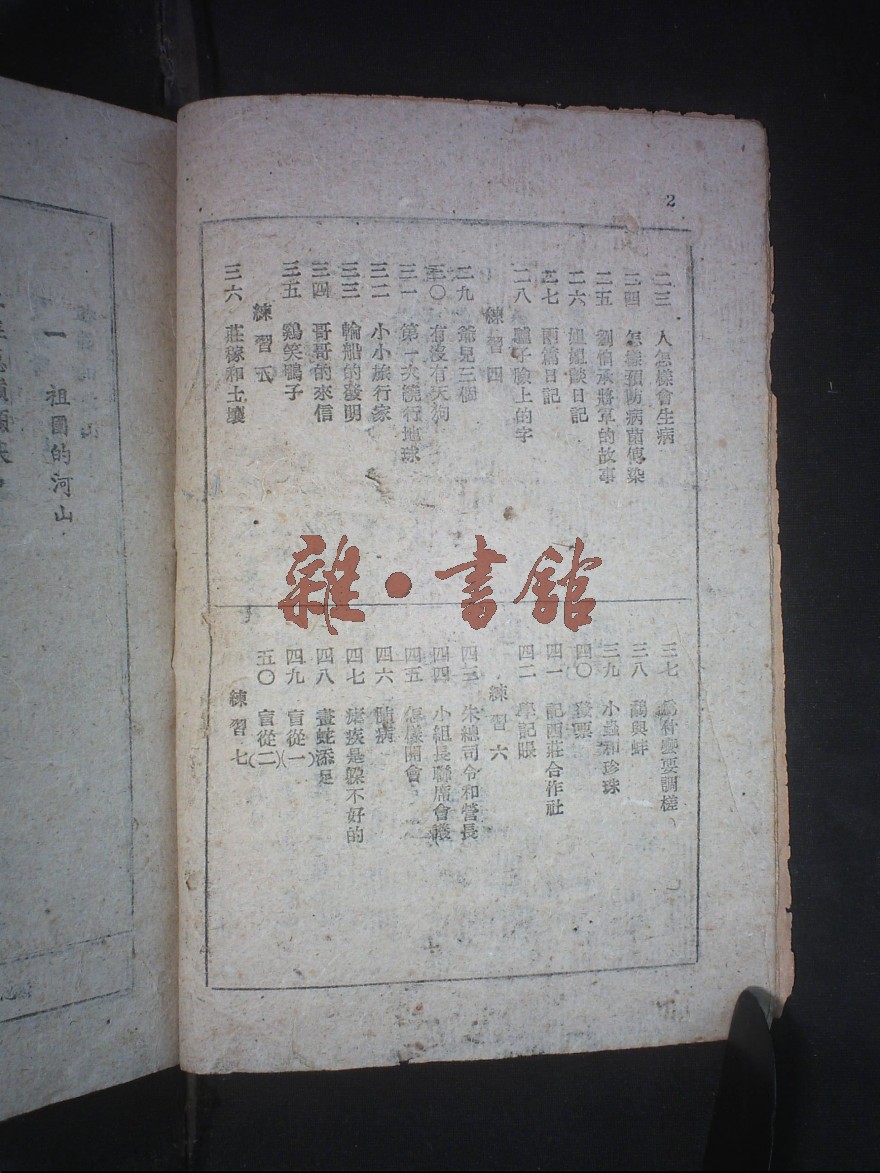 2
二三 人怎樣會生病
二四 怎樣預防病菌傳染
二五 劉伯承將軍的故事
二六 姐姐談日記
二七 兩篇日記
二八 驢子臉上的字
練習四
二九 爺兒三個
三〇 有沒有天狗
三一 第一次繞行地球
三二 小小旅行家
三三 輪船的發明
三四 哥哥的來信
三五 鷄笑鴨子
練習五
三六 莊稼和土壤
三七 要調樣
三八 鷸與蚌
三九 小蟲和珍珠
四〇 發票
四一 記西莊合作社
四二 學記賬
練習六
四三 朱總司令和營長
四四 小組長聯席會議
四五 怎樣開會
四六 病
四七 瘧疾是躱不好的
四八 畫蛇添足
四九 盲從(一)
五〇 盲從(二)
練習七
雜·書館
一 祖國的河山